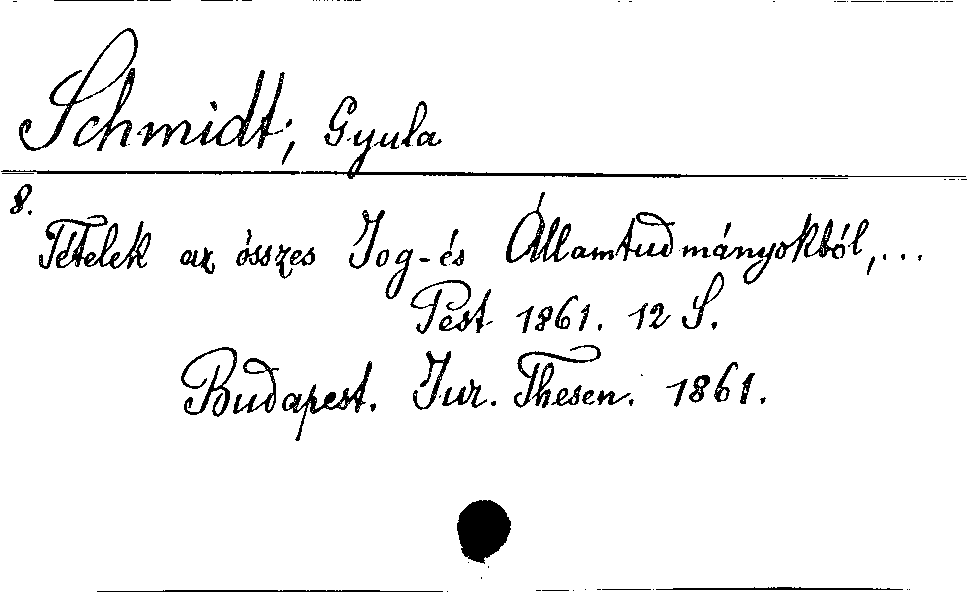 Schmidt; Gyula
8.
Tételek az összes Jog-és Államtudmányokból,...
Pest 1861. 12 S.
Budapest. Jur. Thesen. 1861.